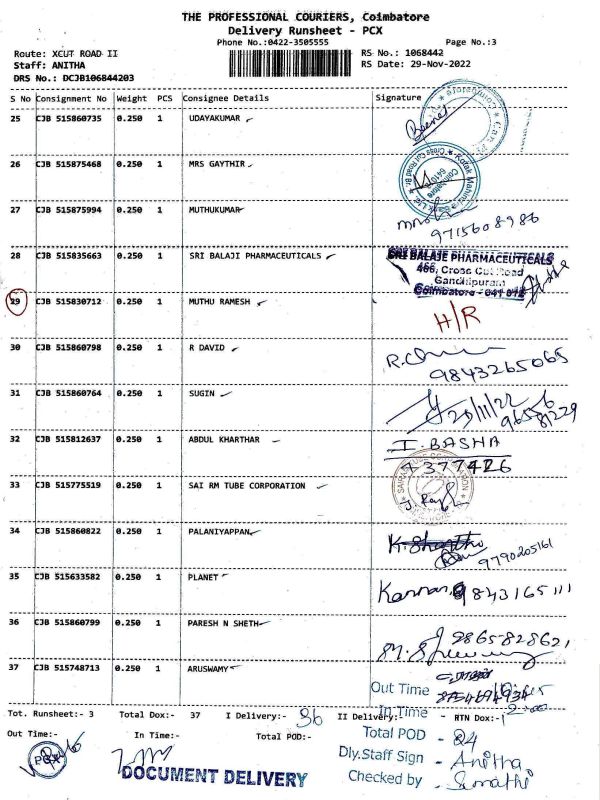 THE PROFESSIONAL COURIERS, Coimbatore
Delivery Runsheet - PCX
Phone No.:0422-3505555 Page No.:3
Route: XCUT ROAD II RS No.: 1068442
Staff: ANITHA RS Date: 29-Nov-2022
DRS No.: DCJB106844203
S No Consignment No Weight PCS Consignee Details Signature
25 CJB 515860735 0.250 1 UDAYAKUMAR
26 CJB 515875468 0.250 1 MRS GAYTHIR
27 CJB 515875994 0.250 1 MUTHUKUMAR
9715608986
28 CJB 515835663 0.250 1 SRI BALAJI PHARMACEUTICALS
SRI BALAJE PHARMACEUTICALS
466, Cross Cut Road
Gandhipuram
Coimbatore - 641 012
29 CJB 515830712 0.250 1 MUTHU RAMESH H/R
30 CJB 515860798 0.250 1 R DAVID
9843265065
31 CJB 515860764 0.250 1 SUGIN
29/11/22
32 CJB 515812637 0.250 1 ABDUL KHARTHAR I. BASHA
7377426
33 CJB 515775519 0.250 1 SAI RM TUBE CORPORATION
34 CJB 515860822 0.250 1 PALANIYAPPAN
9790205161
35 CJB 515633582 0.250 1 PLANET Kannan 9843165111
36 CJB 515860799 0.250 1 PARESH N SHETH 9865828621
37 CJB 515748713 0.250 1 ARUSWAMY
Out Time
Tot. Runsheet:- 3 Total Dox:- 37 I Delivery:- 36 II Delivery:- - RTN Dox:- 1
In Time -
Out Time:- In Time:- Total POD:-
Total POD - 24
Dly.Staff Sign - Anitha
Checked by - Sumathi
PCX
DOCUMENT DELIVERY